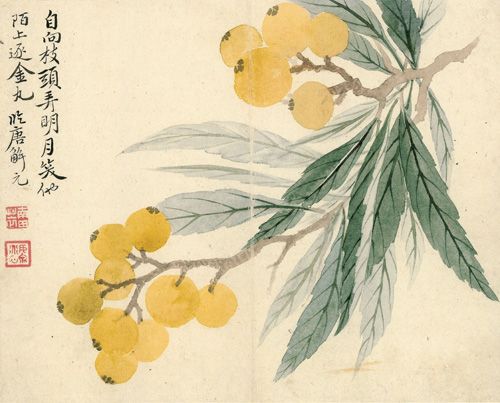 自向枝頭弄明月笑他
陌上逐金丸 临唐解元